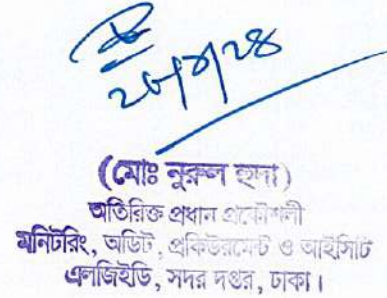 (মোঃ নুরুল হুদা)
অতিরিক্ত প্রধান প্রকৌশলী
মনিটরিং, অডিট, প্রকিউরমেন্ট ও আইসিটি
এলজিইডি, সদর দপ্তর, ঢাকা।